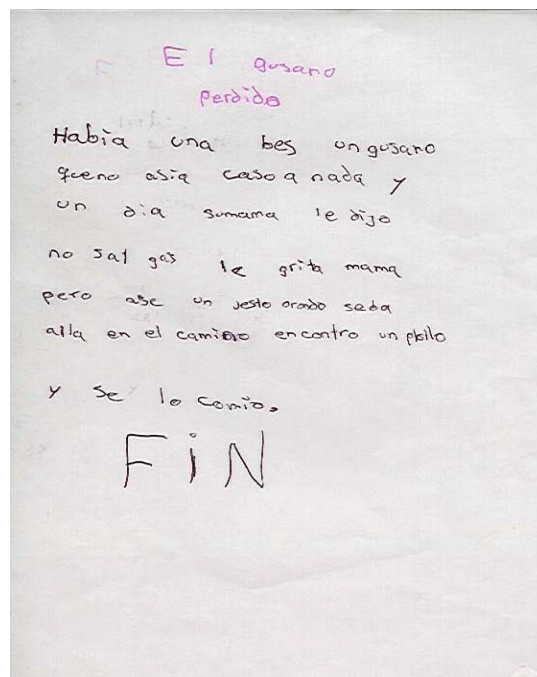 El gusano
perdido
Había una bes un gusano
queno asia caso a nada y
un dia sumama le dijo
no sal gas le grita mama
pero ase un jesto orado seba
alla en el camino encontro un pollo
y se lo comio.
FiN